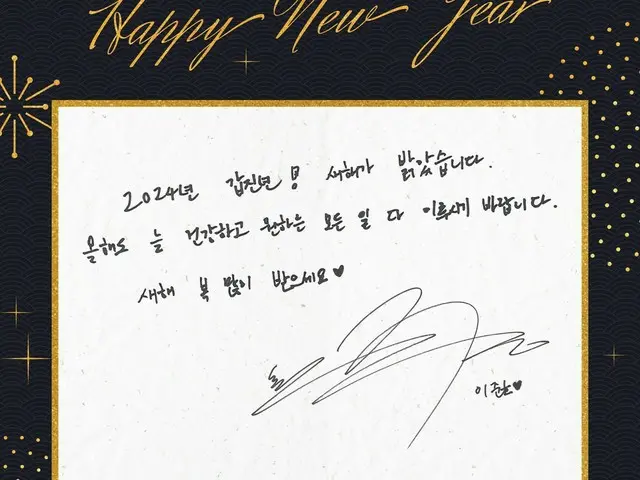 Happy New Year
2024년 갑진년 새해가 밝았습니다.
올해도 늘 건강하고 원하는 모든 일 다 이루시길 바랍니다.
새해 복 많이 받으세요♥
이준호♥